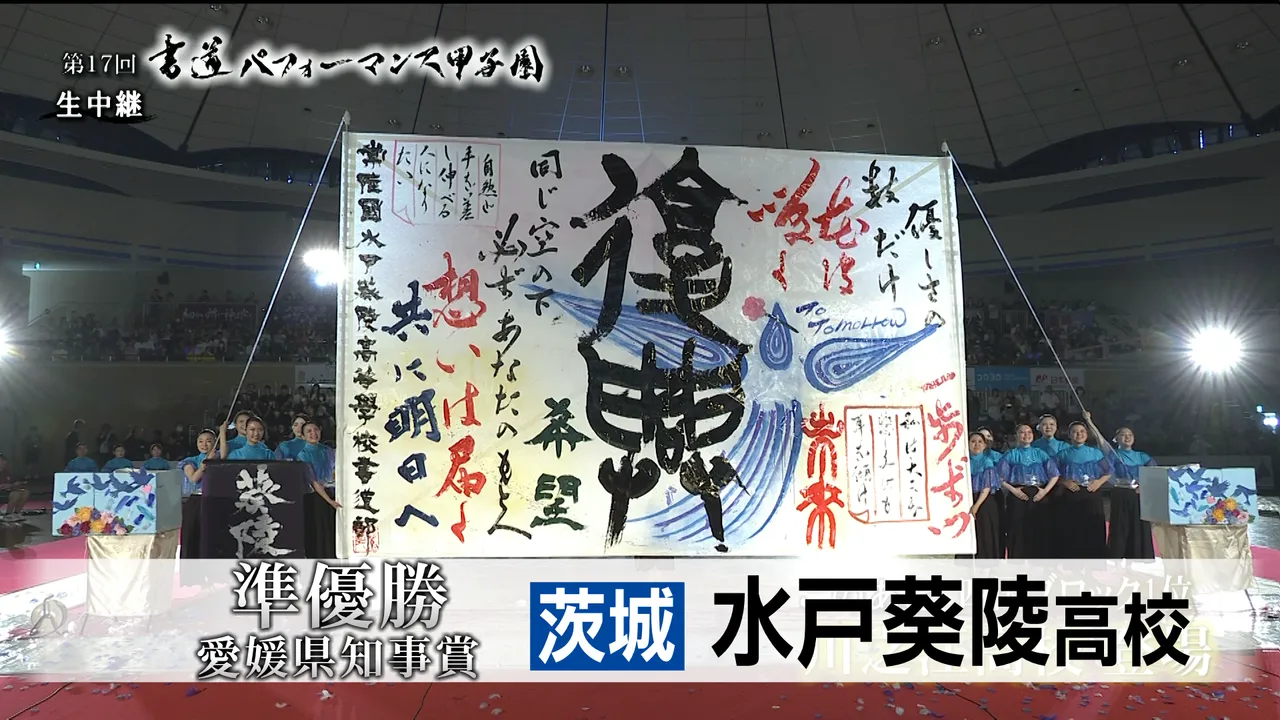 第17回 書道パフォーマンス甲子園
生中継
優しさの
数だけ
花は
咲く
To
Tomorrow
歩もう
未来
復興
希望
同じ空の下
必ずあなたのもとへ
想いは届く
共に明日へ
自然に
手を差
し伸べる
人になり
たい
常陸國水戸葵陵高等學校書道部
葵陵
準優勝
愛媛県知事賞
茨城 水戸葵陵高校